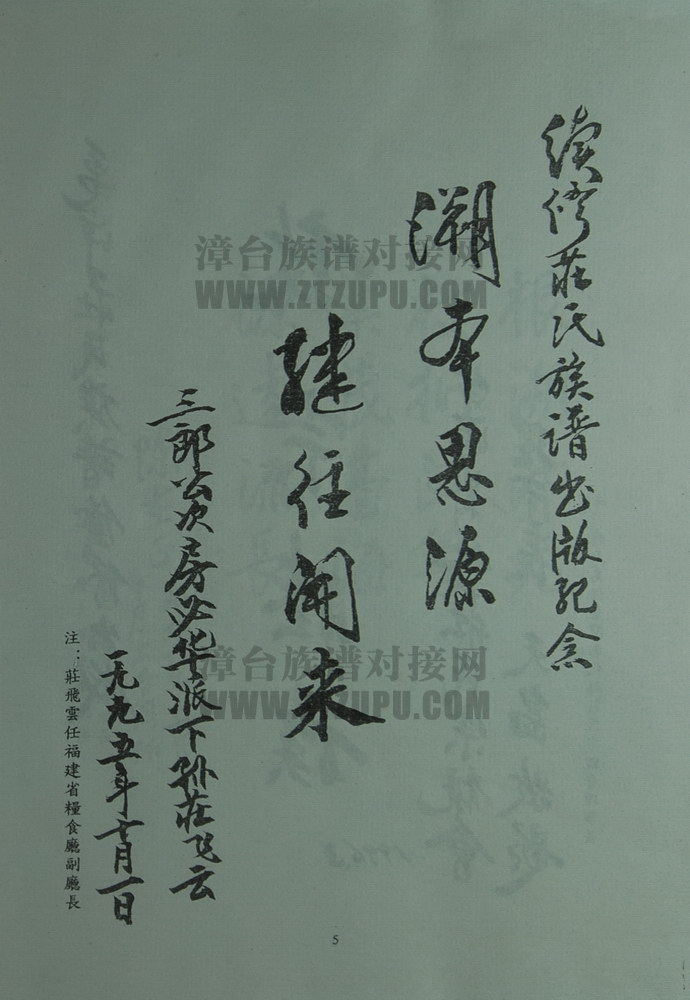 续修莊氏族谱出版紀念
溯本思源
继往開来
三郎公次房必华派下孙莊飞云
一九九五年十一月一日
注：莊飛雲任福建省糧食廳副廳長
漳台族谱对接网
WWW.ZTZUPU.COM
漳台族谱对接网
WWW.ZTZUPU.COM
5